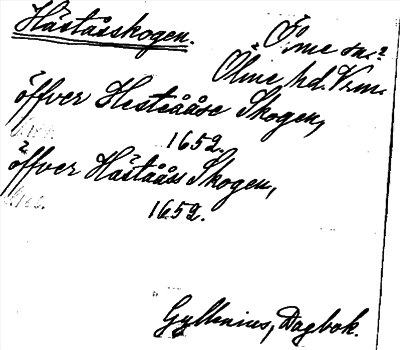 Håståsskogen.
Ölme sn.?
Ölme hd. Vrm.
öffver Hesteååse Skogen,
1652.
öffver Håstååss Skogen,
1652.
Gyllenius, Dagbok.